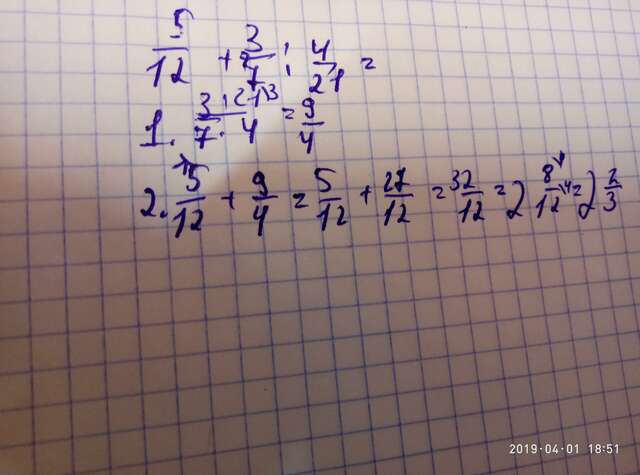 5/12 + 3/7 : 4/21 =
1. 3·21 3/7·4 = 9/4
2. 5/12 + 9/4 = 5/12 + 27/12 = 32/12 = 2 8/12 = 2 2/3
2019-04-01 18:51